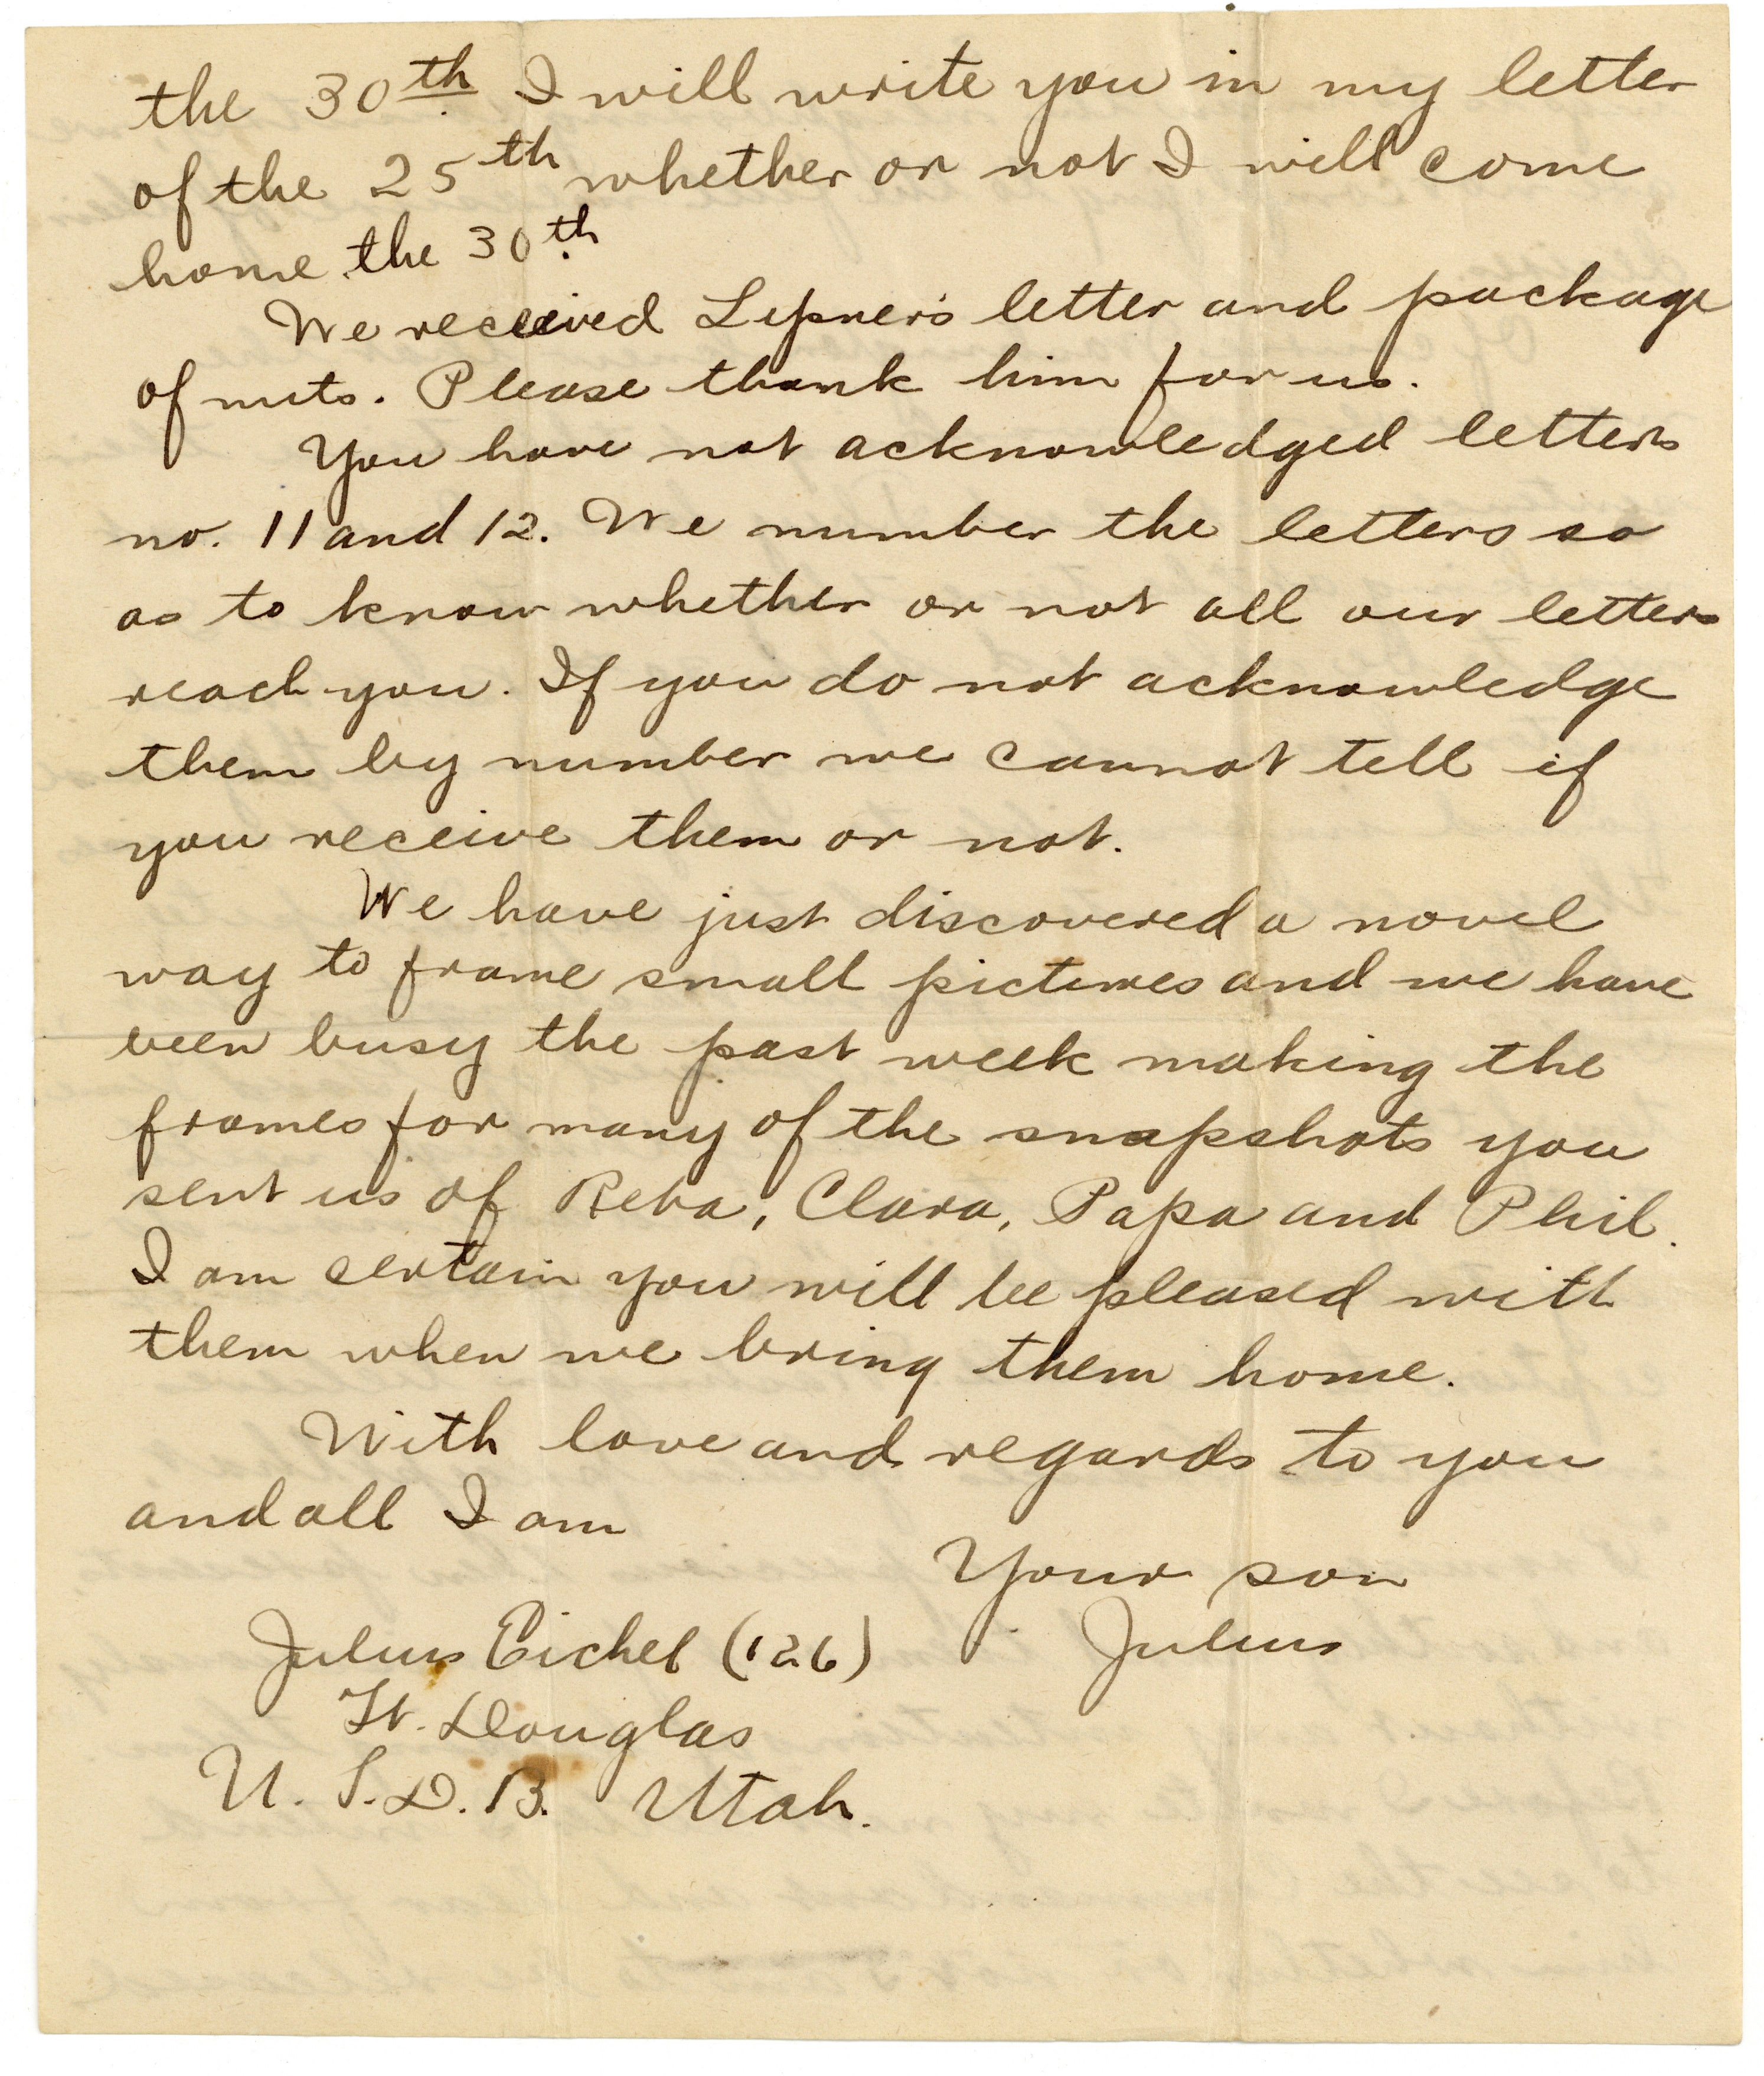 the 30th I will write you in my letter
of the 25th whether or not I will come
home the 30th.
We received Lepner's letter and package
of nuts. Please thank him for us.
You have not acknowledged letters
no. 11 and 12. We number the letters so
as to know whether or not all our letters
reach you. If you do not acknowledge
them by number we cannot tell if
you receive them or not.
We have just discovered a novel
way to frame small pictures and we have
been busy the past week making the
frames for many of the snapshots you
sent us of Reba, Clara, Papa and Phil.
I am certain you will be pleased with
them when we bring them home.
With love and regards to you
and all I am
Your son
Julius
Julius Eichel (126)
Ft. Douglas
U. S. D. B. Utah.